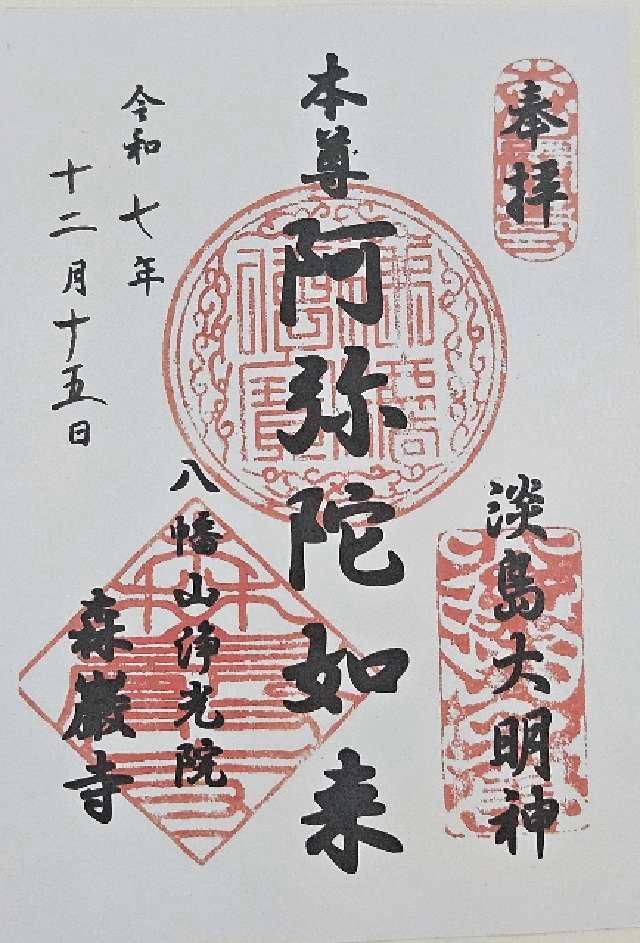 奉拝
淡島大明神
本尊阿弥陀如来
八幡山浄光院
森巌寺
令和七年
十二月十五日